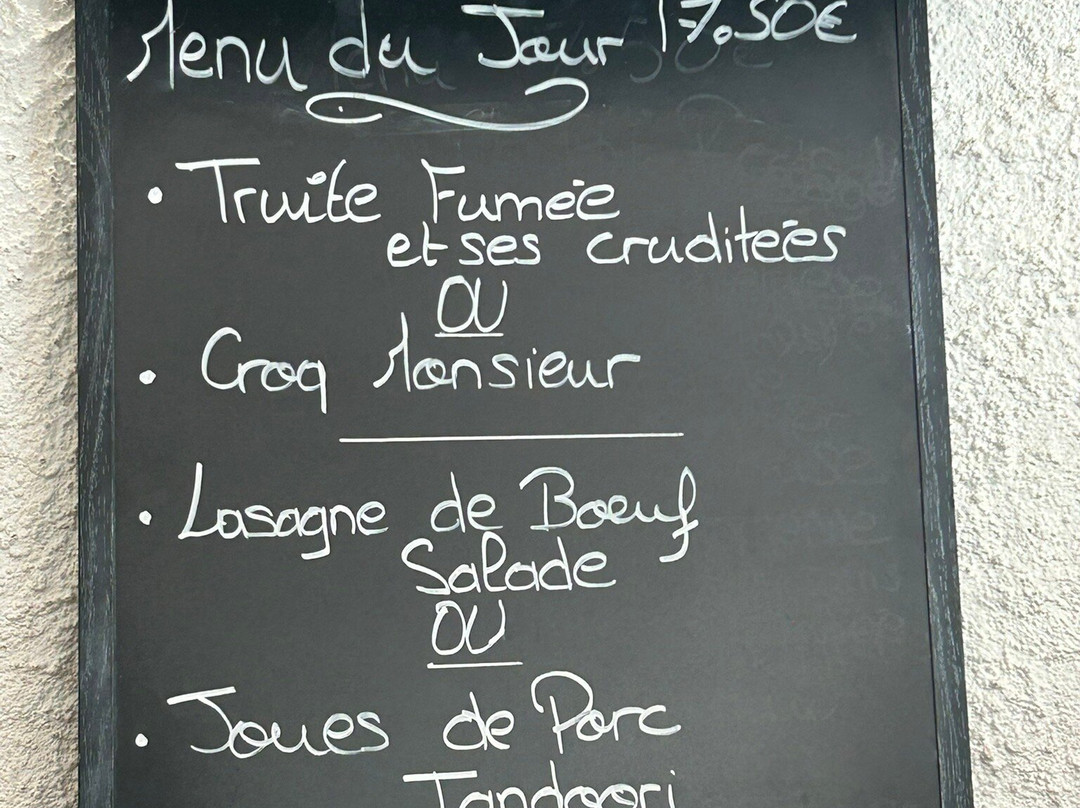 Menu du Jour 17.50€
• Truite Fumée
et ses cruditeés
OU
• Croq Monsieur
• Lasagne de Boeuf
Salade
OU
• Joues de Porc
Tandoori